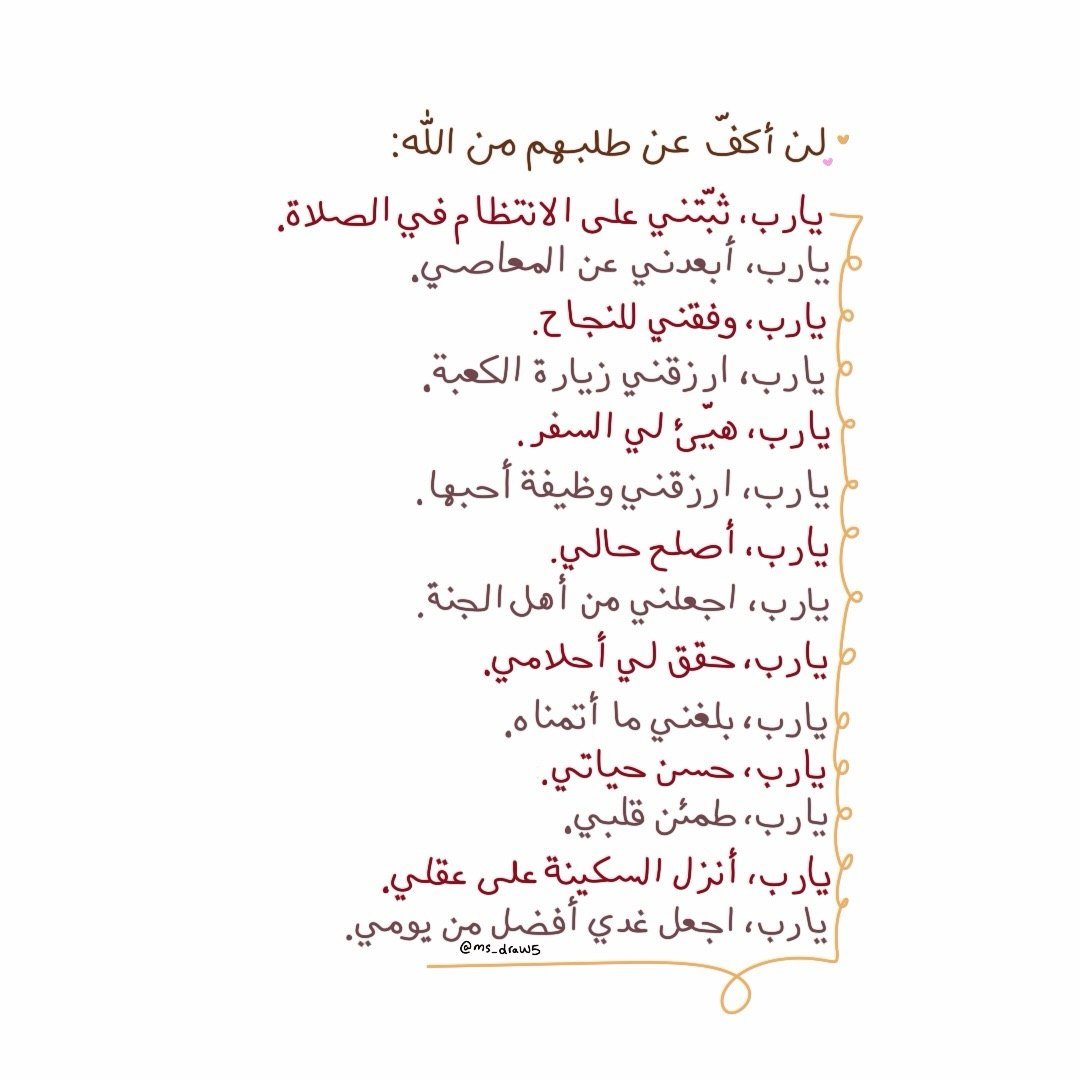 لن أكفّ عن طلبهم من الله:
يارب، ثبّتني على الانتظام في الصلاة.
يارب، أبعدني عن المعاصي.
يارب، وفقني للنجاح.
يارب، ارزقني زيارة الكعبة.
يارب، هيّئ لي السفر.
يارب، ارزقني وظيفة أحبها.
يارب، أصلح حالي.
يارب، اجعلني من أهل الجنة.
يارب، حقق لي أحلامي.
يارب، بلغني ما أتمناه.
يارب، حسن حياتي.
يارب، طمئن قلبي.
يارب، أنزل السكينة على عقلي.
يارب، اجعل غدي أفضل من يومي.
@ms_draw5